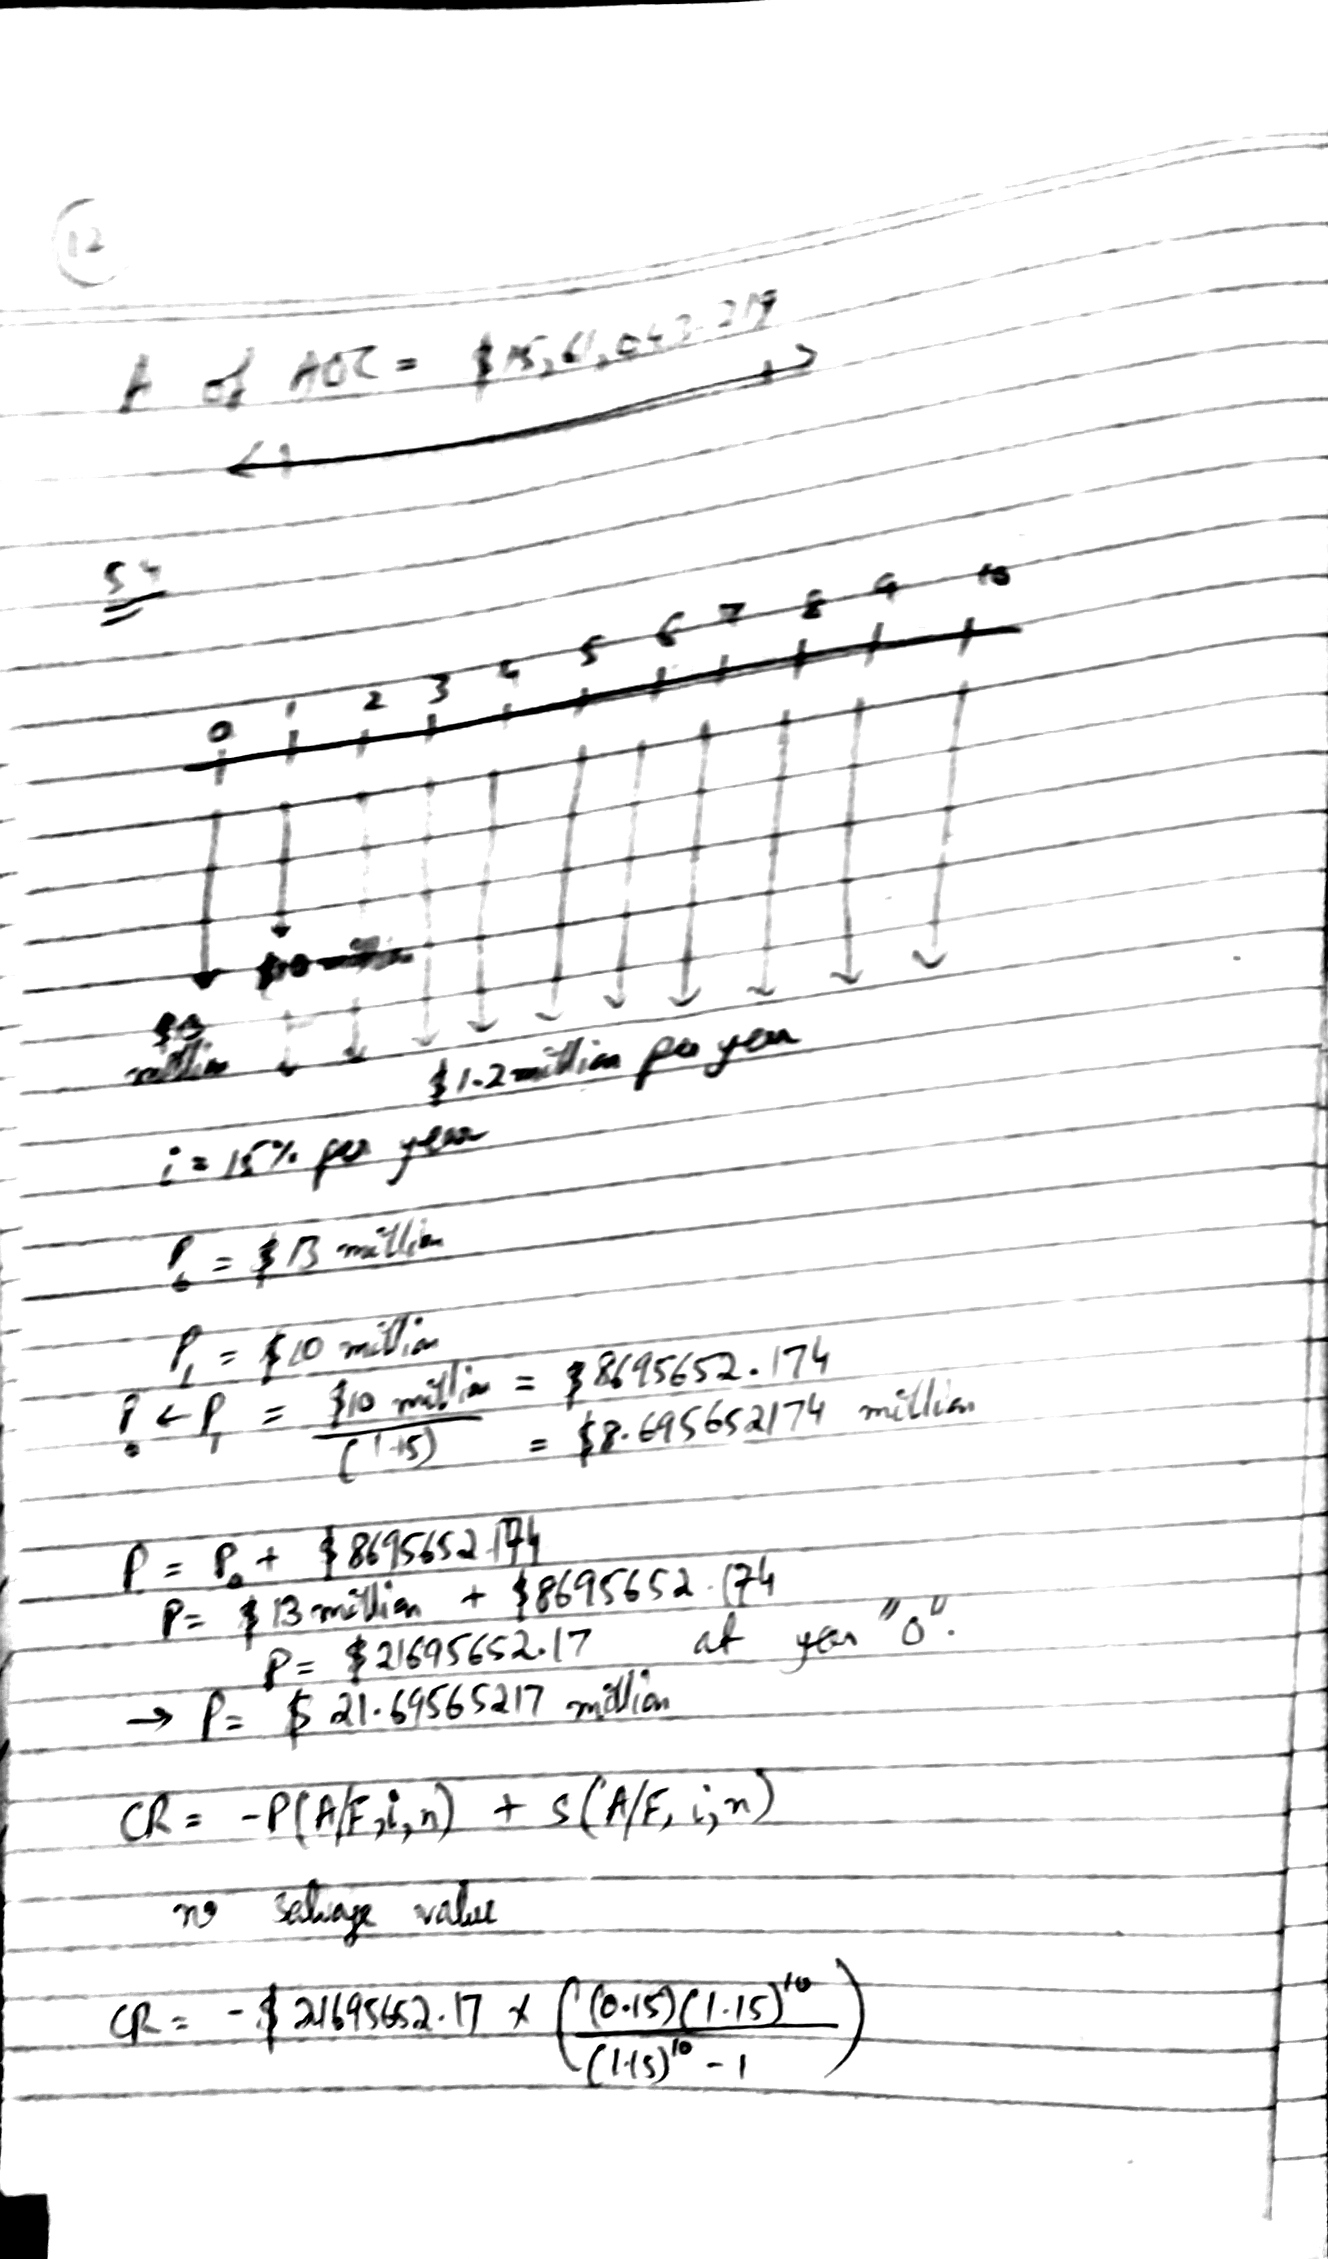 12
A of AOC = $15,61,043.219
54
0 1 2 3 4 5 6 7 8 9 10
$13 million
$1.2 million per year
i = 15% per year
P₀ = $13 million
P₁ = $10 million
P₀ ← P₁ = $10 million / (1.15) = $8695652.174
= $8.695652174 million
P = P₀ + $8695652.174
P = $13 million + $8695652.174
P = $21695652.17 at year "0".
→ P = $21.69565217 million
CR = -P(A/F,i,n) + S(A/F, i,n)
no salvage value
CR = -$21695652.17 x ((0.15)(1.15)¹⁰ / (1.15)¹⁰ - 1)